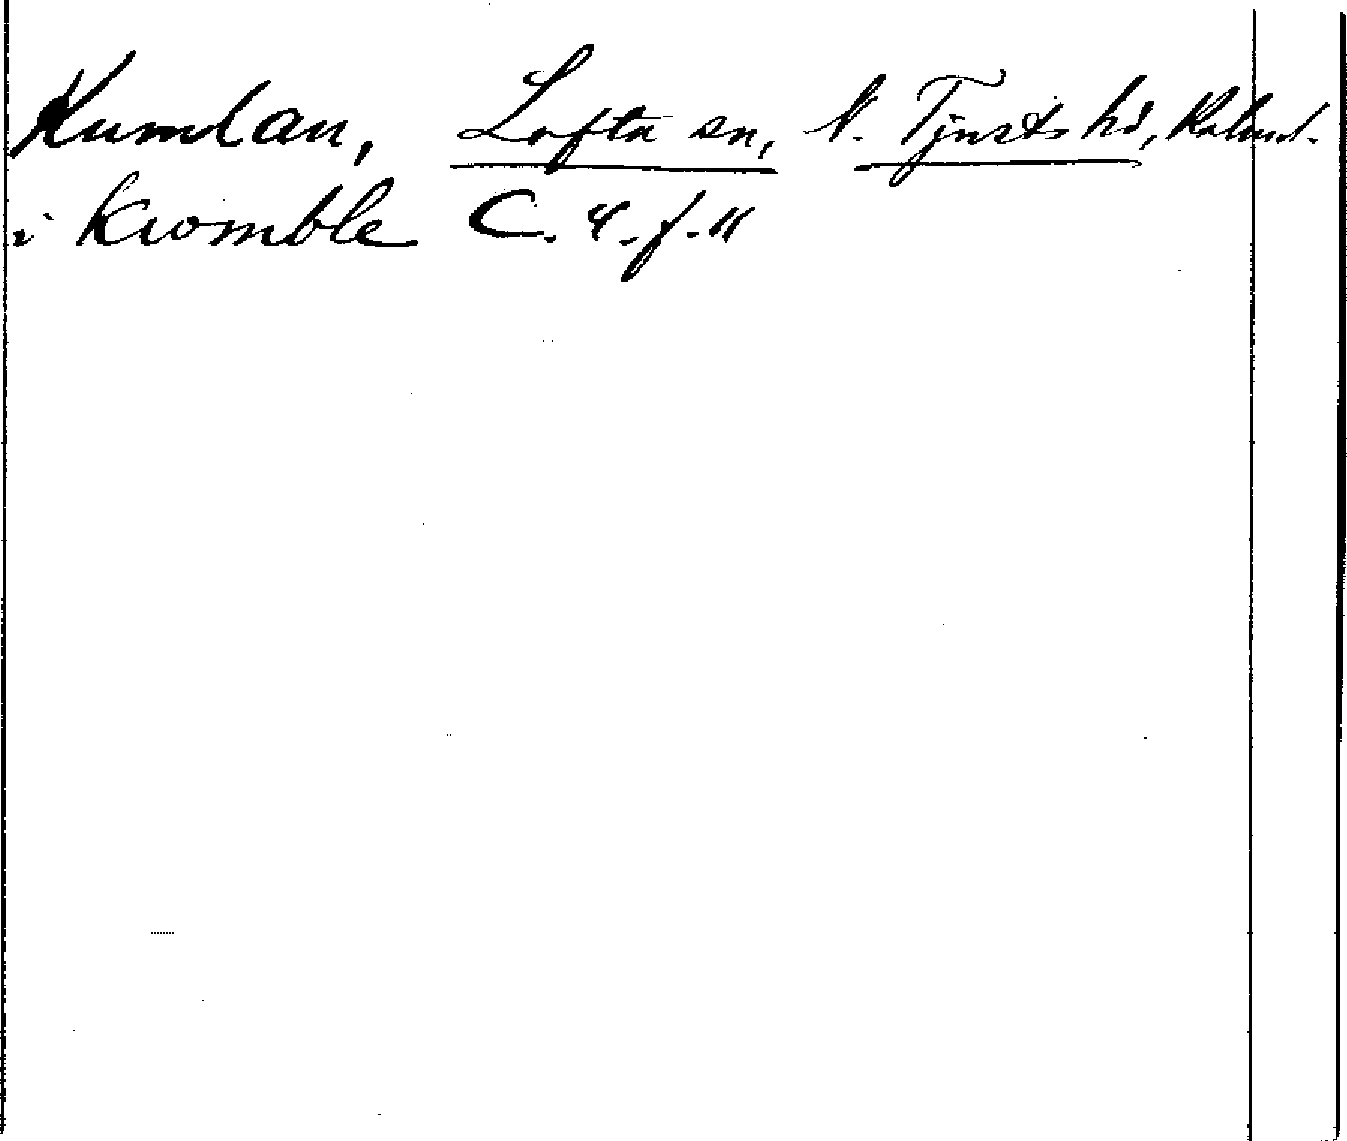 Kumlan, Lofta sn, N. Tjusts hd, Kalm.l.
i Kvomble C. 4. f. 11